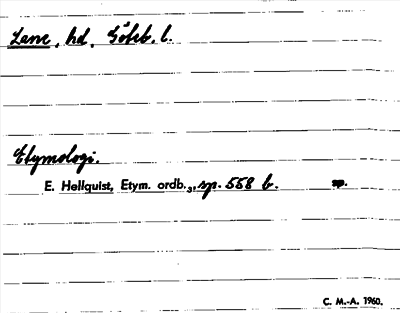 Lane, hd, Göteb. l.
Etymologi.
E. Hellquist, Etym. ordb.₃, sp. 558 b. sp.
C. M.-A. 1960.